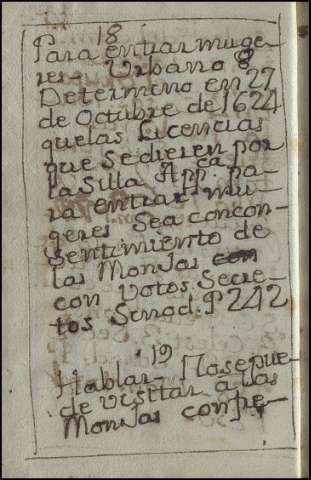 18
Para entrar muge-
res- Urbano 8
Determino en 27
de Octubre de 1624
quelas Licencias
que Sedieren por
la Silla App.ca pa-
ra entrar mu-
geres Sea concon-
Sentimiento de
las Monjas con
con Votos Secre-
tos Sinod. P 242
19
Hablar- Nosepue-
de visitar a las
Monjas con pre-